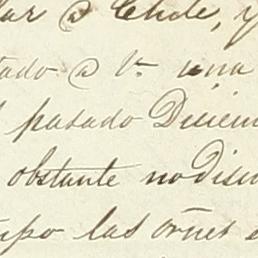 a Chile, y
tado a V. una
pasado Diciem
obstante no dis
mpo las ornes